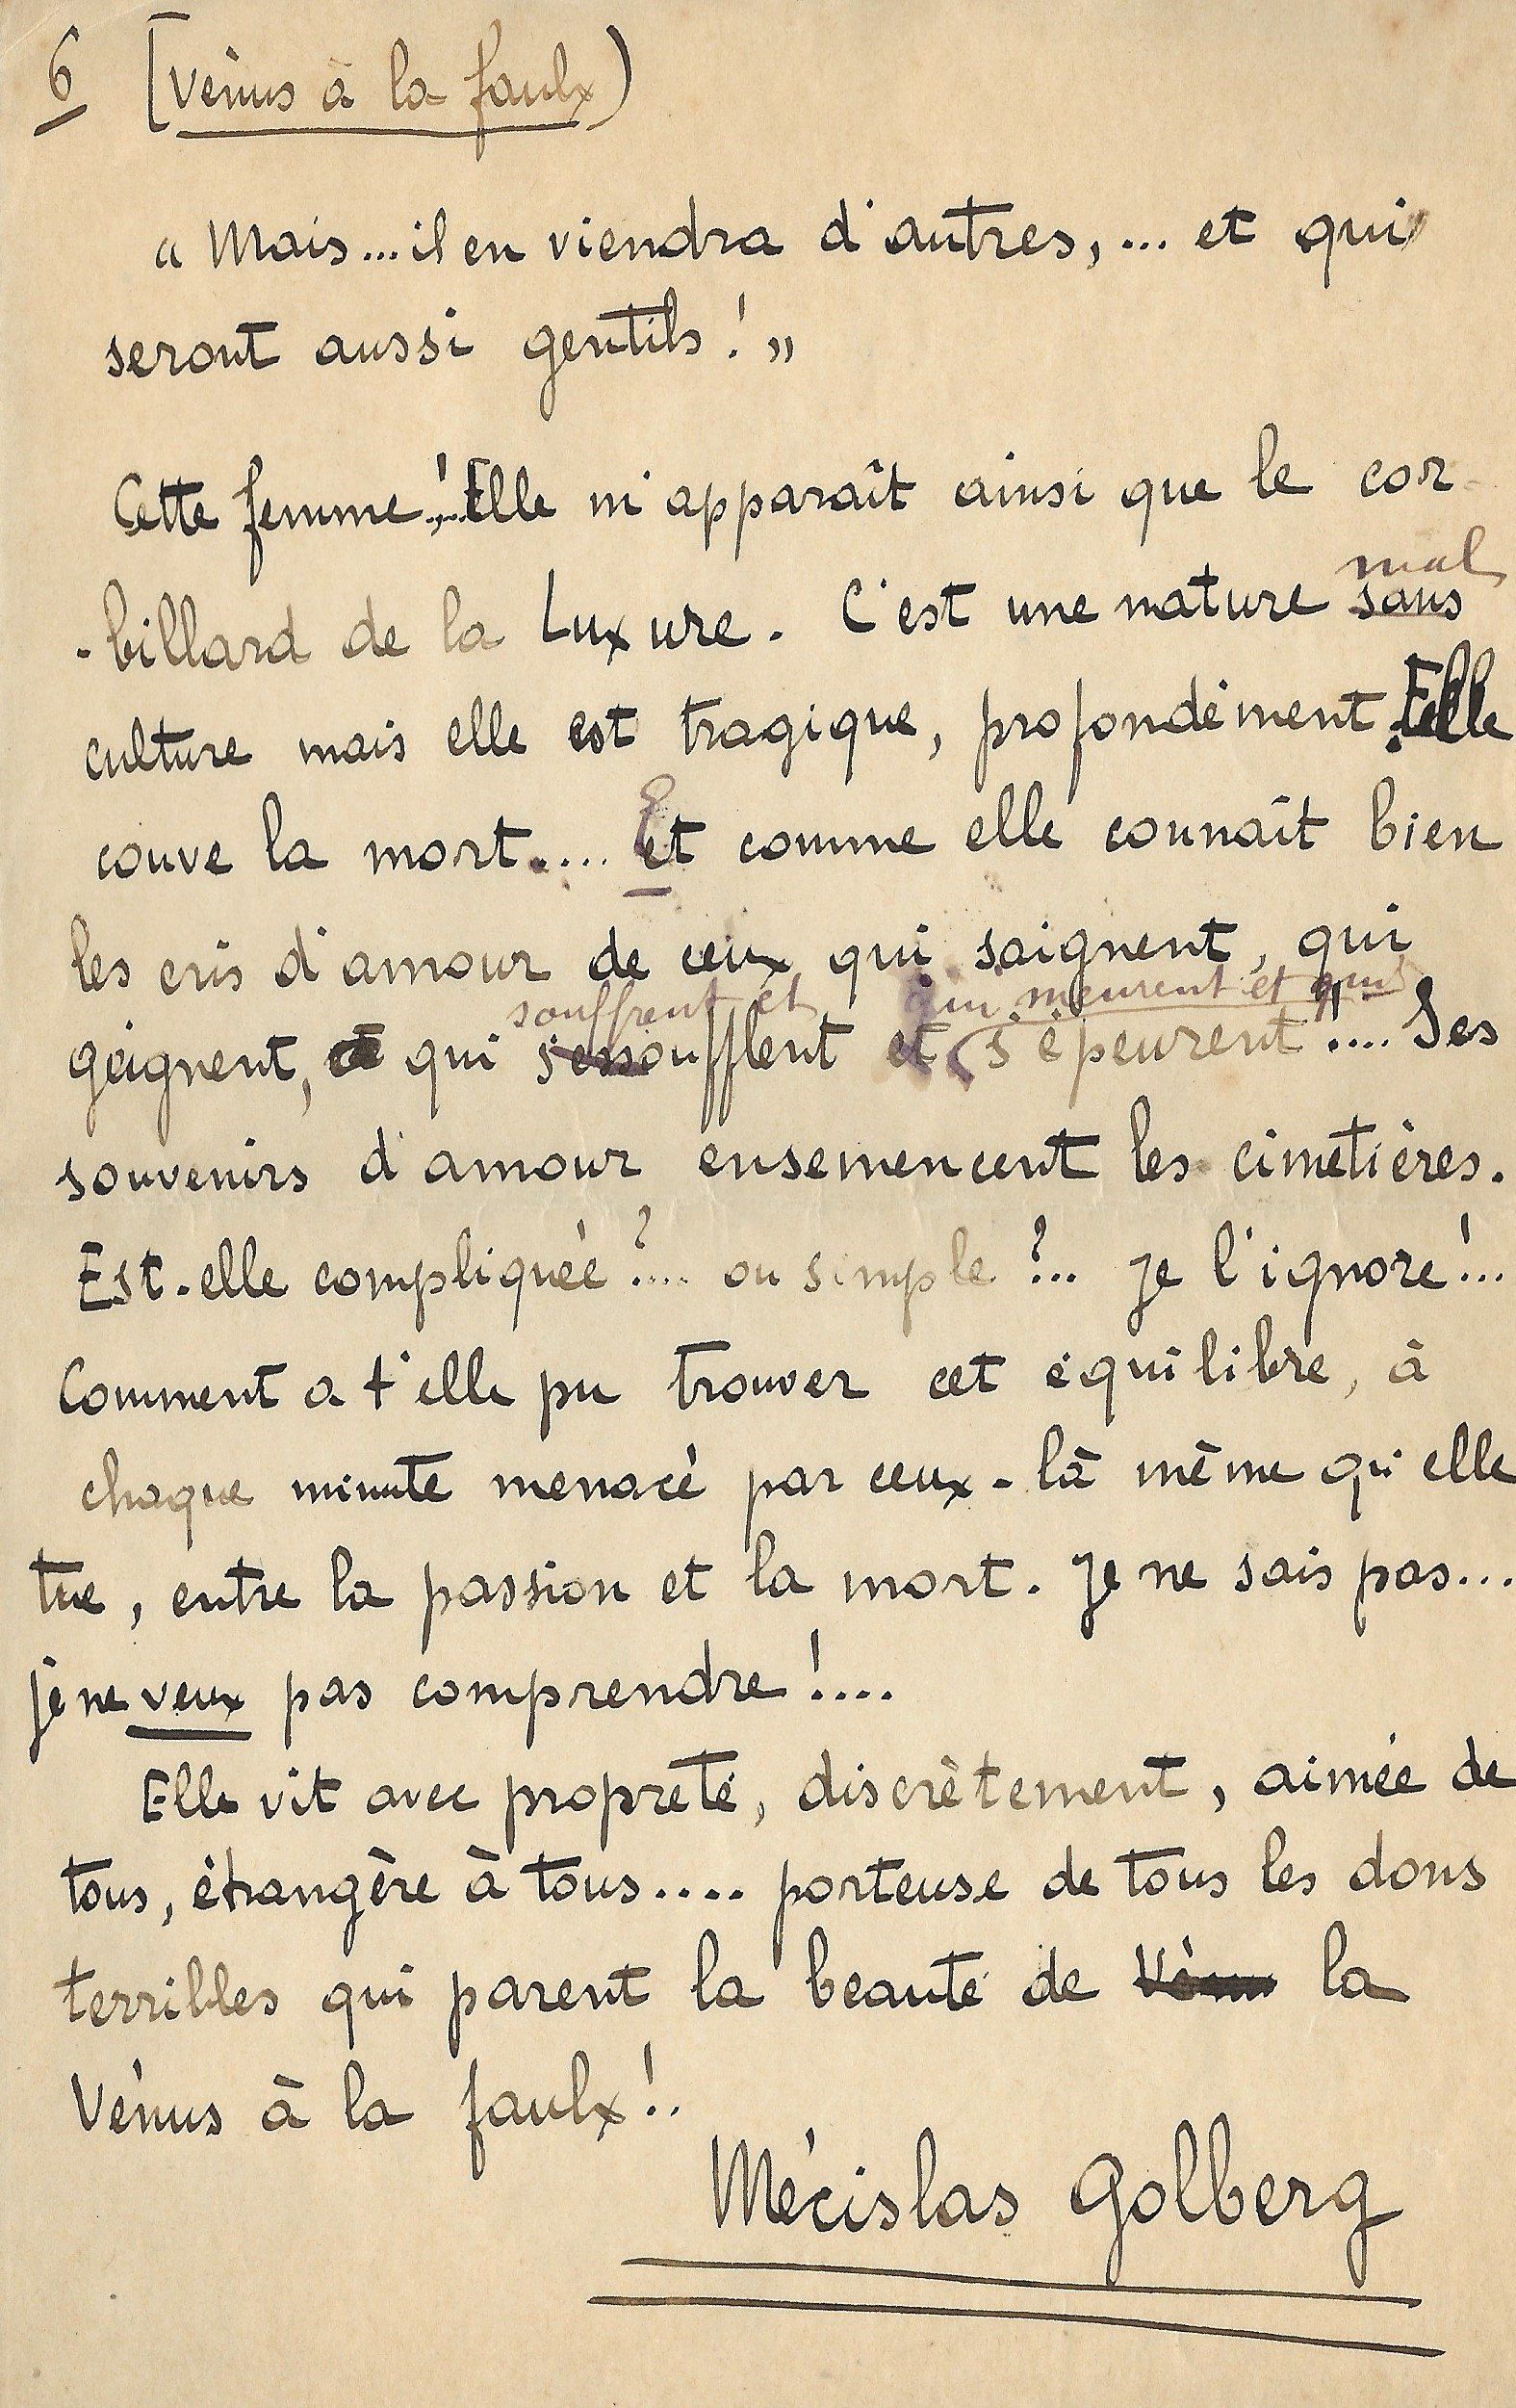 6 [Vénus à la faulx)
« Mais... il en viendra d'autres, ... et qui
seront aussi gentils! »
Cette femme!.. Elle m'apparaît ainsi que le cor-
-billard de la Luxure. C'est une nature sans
mal
culture mais elle est tragique, profondément. Elle
couve la mort.... Et comme elle connaît bien
les cris d'amour de ceux qui saignent, qui
souffrent et qui meurent et qui
geignent, qui s'essoufflent et s'épeurent!.... Ses
souvenirs d'amour ensemencent les cimetières.
Est-elle compliquée?.... ou simple?... Je l'ignore!...
Comment a t'elle pu trouver cet équilibre, à
chaque minute menacé par ceux-là même qu'elle
tue, entre la passion et la mort. Je ne sais pas...
je ne veux pas comprendre!....
Elle vit avec propreté, discrètement, aimée de
tous, étrangère à tous.... porteuse de tous les dons
terribles qui parent la beauté de la
Vénus à la faulx!..
Mécislas Golberg